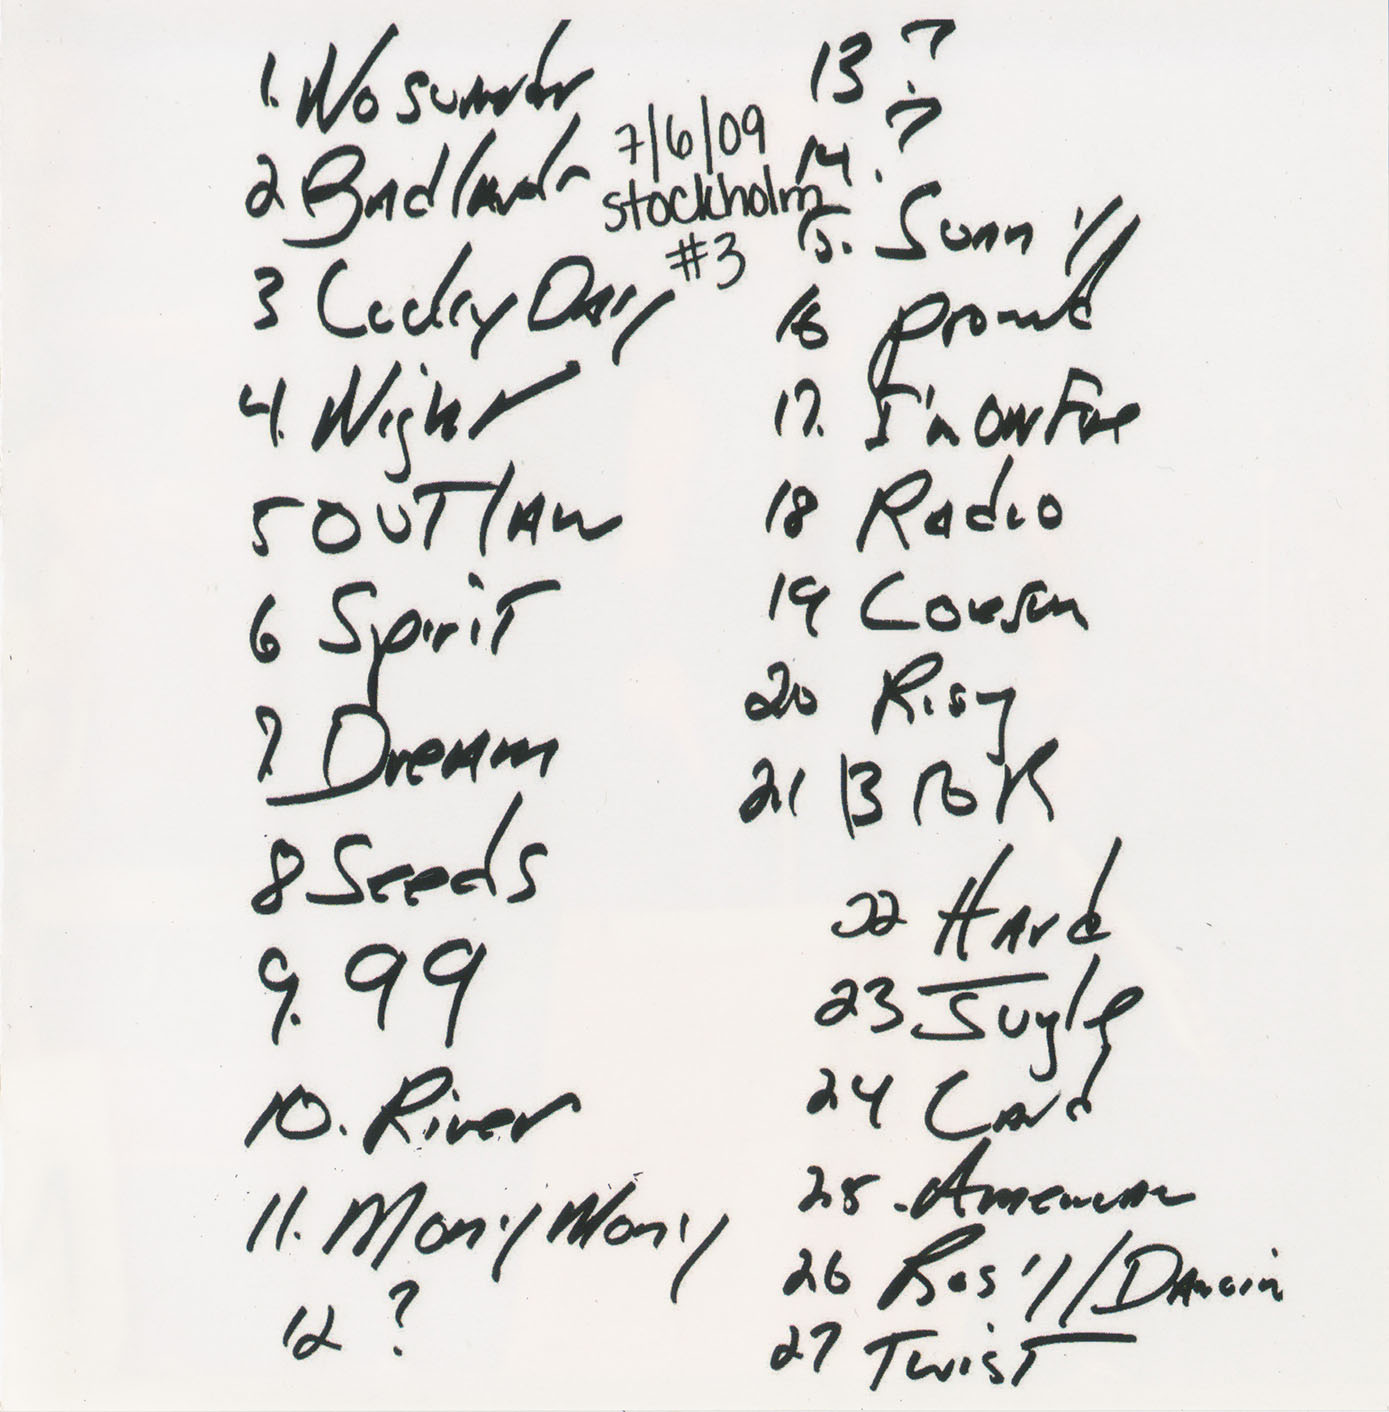 1. No surrender
2 Badlands
3 Lucky Day
4. Night
5 OUTlAW
6 Spirit
7. Dream
8 Seeds
9. 99
10. River
11. Mony Mony
12 ?
7/6/09
stockholm
#3
13 ?
14. ?
15. Sunn
16 promd
17. I'm ON Fire
18 Radio
19 Lonesom
20 Rising
21 B to R
22 Hard
23 Jungle
24 Card
25. American
26 Ros / Dancin
27 Twist